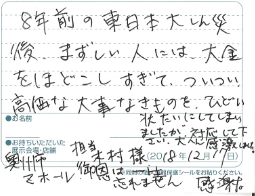 8年前の東日本大しん災
後、まずしい人には、大金
をほどこしすぎて、ついつい
高価な大事なきものを、ひどい
状たいにしてしまい
ましたが、対応して下
さい、
感謝
●お名前
●お持ちいただいた
展示会場・店舗
奥州市
Zホール
担当
木村様
御恩は
忘れません
(2018年12月17日)
感謝